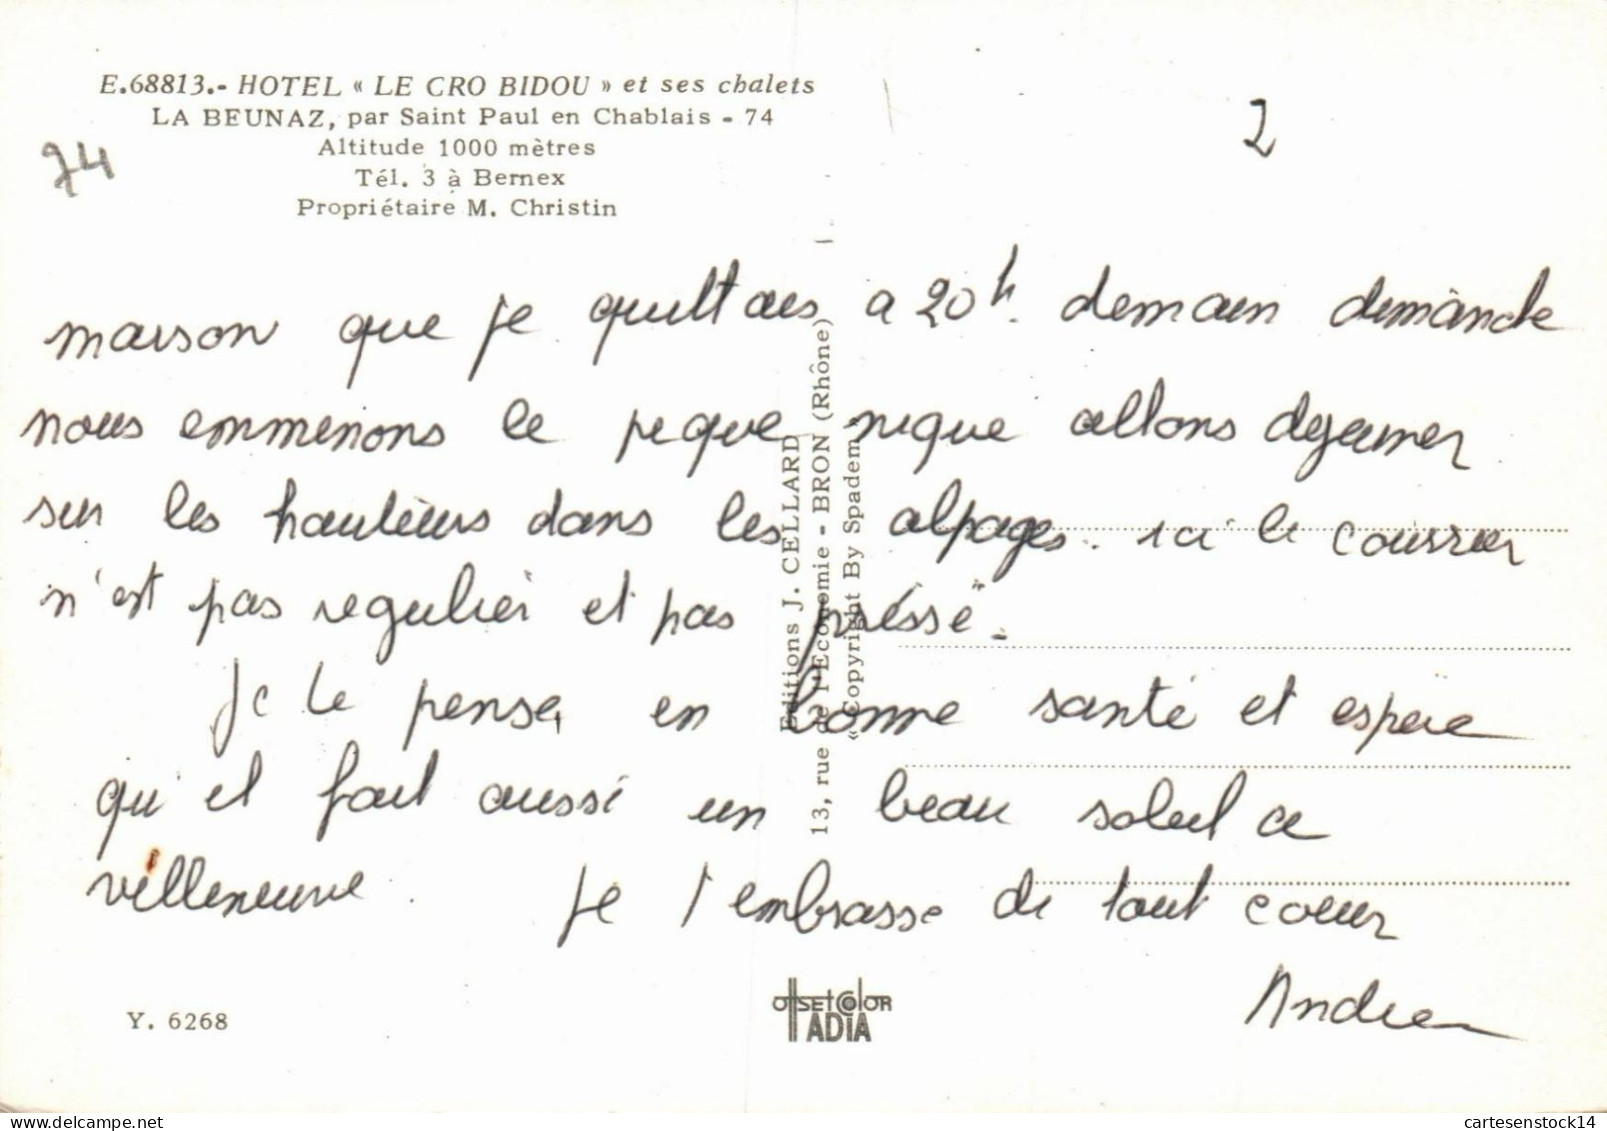 E.68813.- HOTEL « LE CRO BIDOU » et ses chalets
LA BEUNAZ, par Saint Paul en Chablais - 74
Altitude 1000 mètres
Tél. 3 à Bernex
Propriétaire M. Christin
74
2
maison que je quittais a 20h. demain dimanche
nous emmenons le pique nique allons dejeuner
sur les hauteurs dans les alpages. ici le courrier
n'est pas regulier et pas préssé.
Je te pense en bonne santé et espere
qu'il fait aussi un beau soleil a
villeneuve. Je t'embrasse de tout coeur
Andree
Editions J. CELLARD
13, rue de l'Economie - BRON (Rhône)
« Copyright By Spadem »
Y. 6268
OFFSET COLOR
ADIA
cartesenstock14